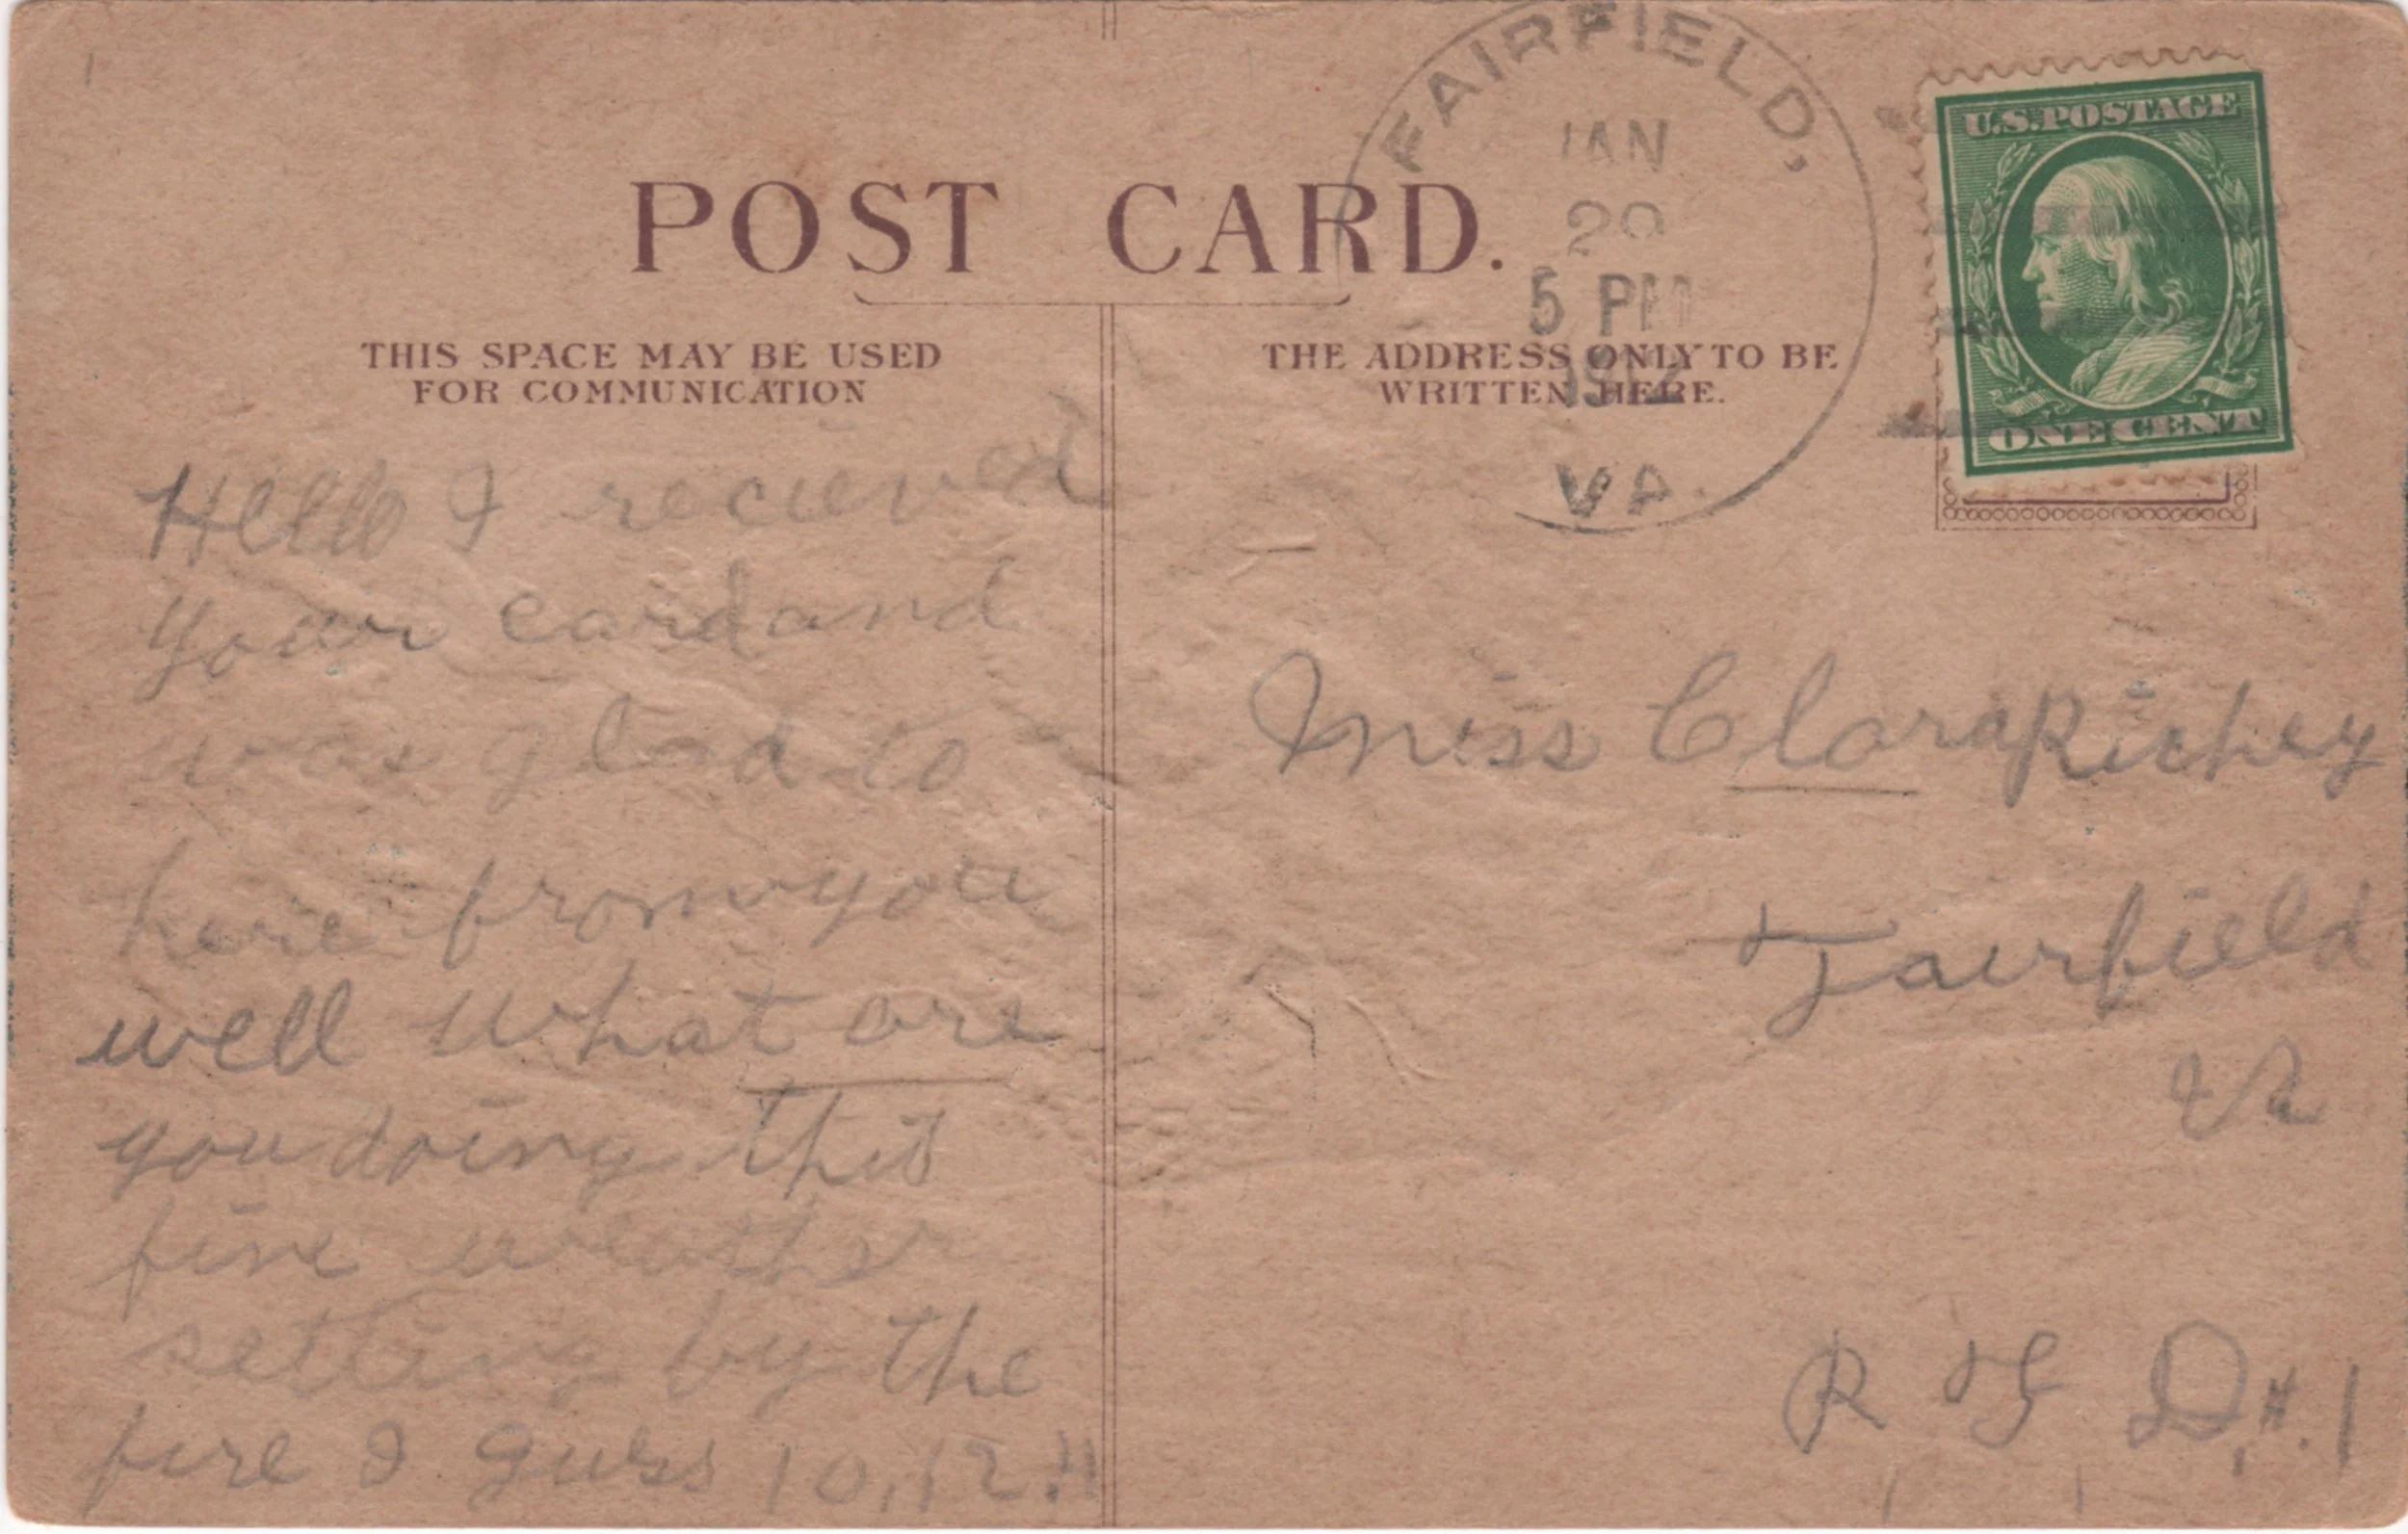 POST CARD.
THIS SPACE MAY BE USED
FOR COMMUNICATION
THE ADDRESS ONLY TO BE
WRITTEN HERE.
FAIRFIELD,
JAN
29
5 PM
1912
VA.
U.S. POSTAGE
ONE CENT
Hello I recieved
your card and
was glad to
here from you
well what are
you doing this
fine weather
setting by the
fire I guess 10,12.11
Miss Clara Richey
Fairfield
Va
R F D #. 1